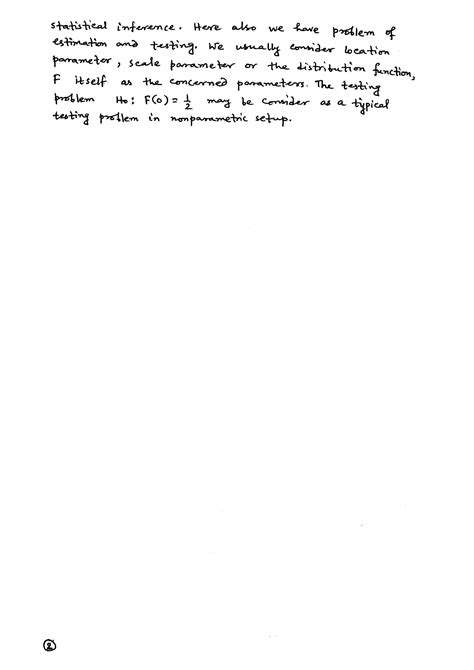 statistical inference. Here also we have problem of
estimation and testing. We usually consider location
parameter, scale parameter or the distribution function,
F itself as the concerned parameters. The testing
problem H₀: F(0) = 1/2 may be consider as a typical
testing problem in nonparametric setup.
2